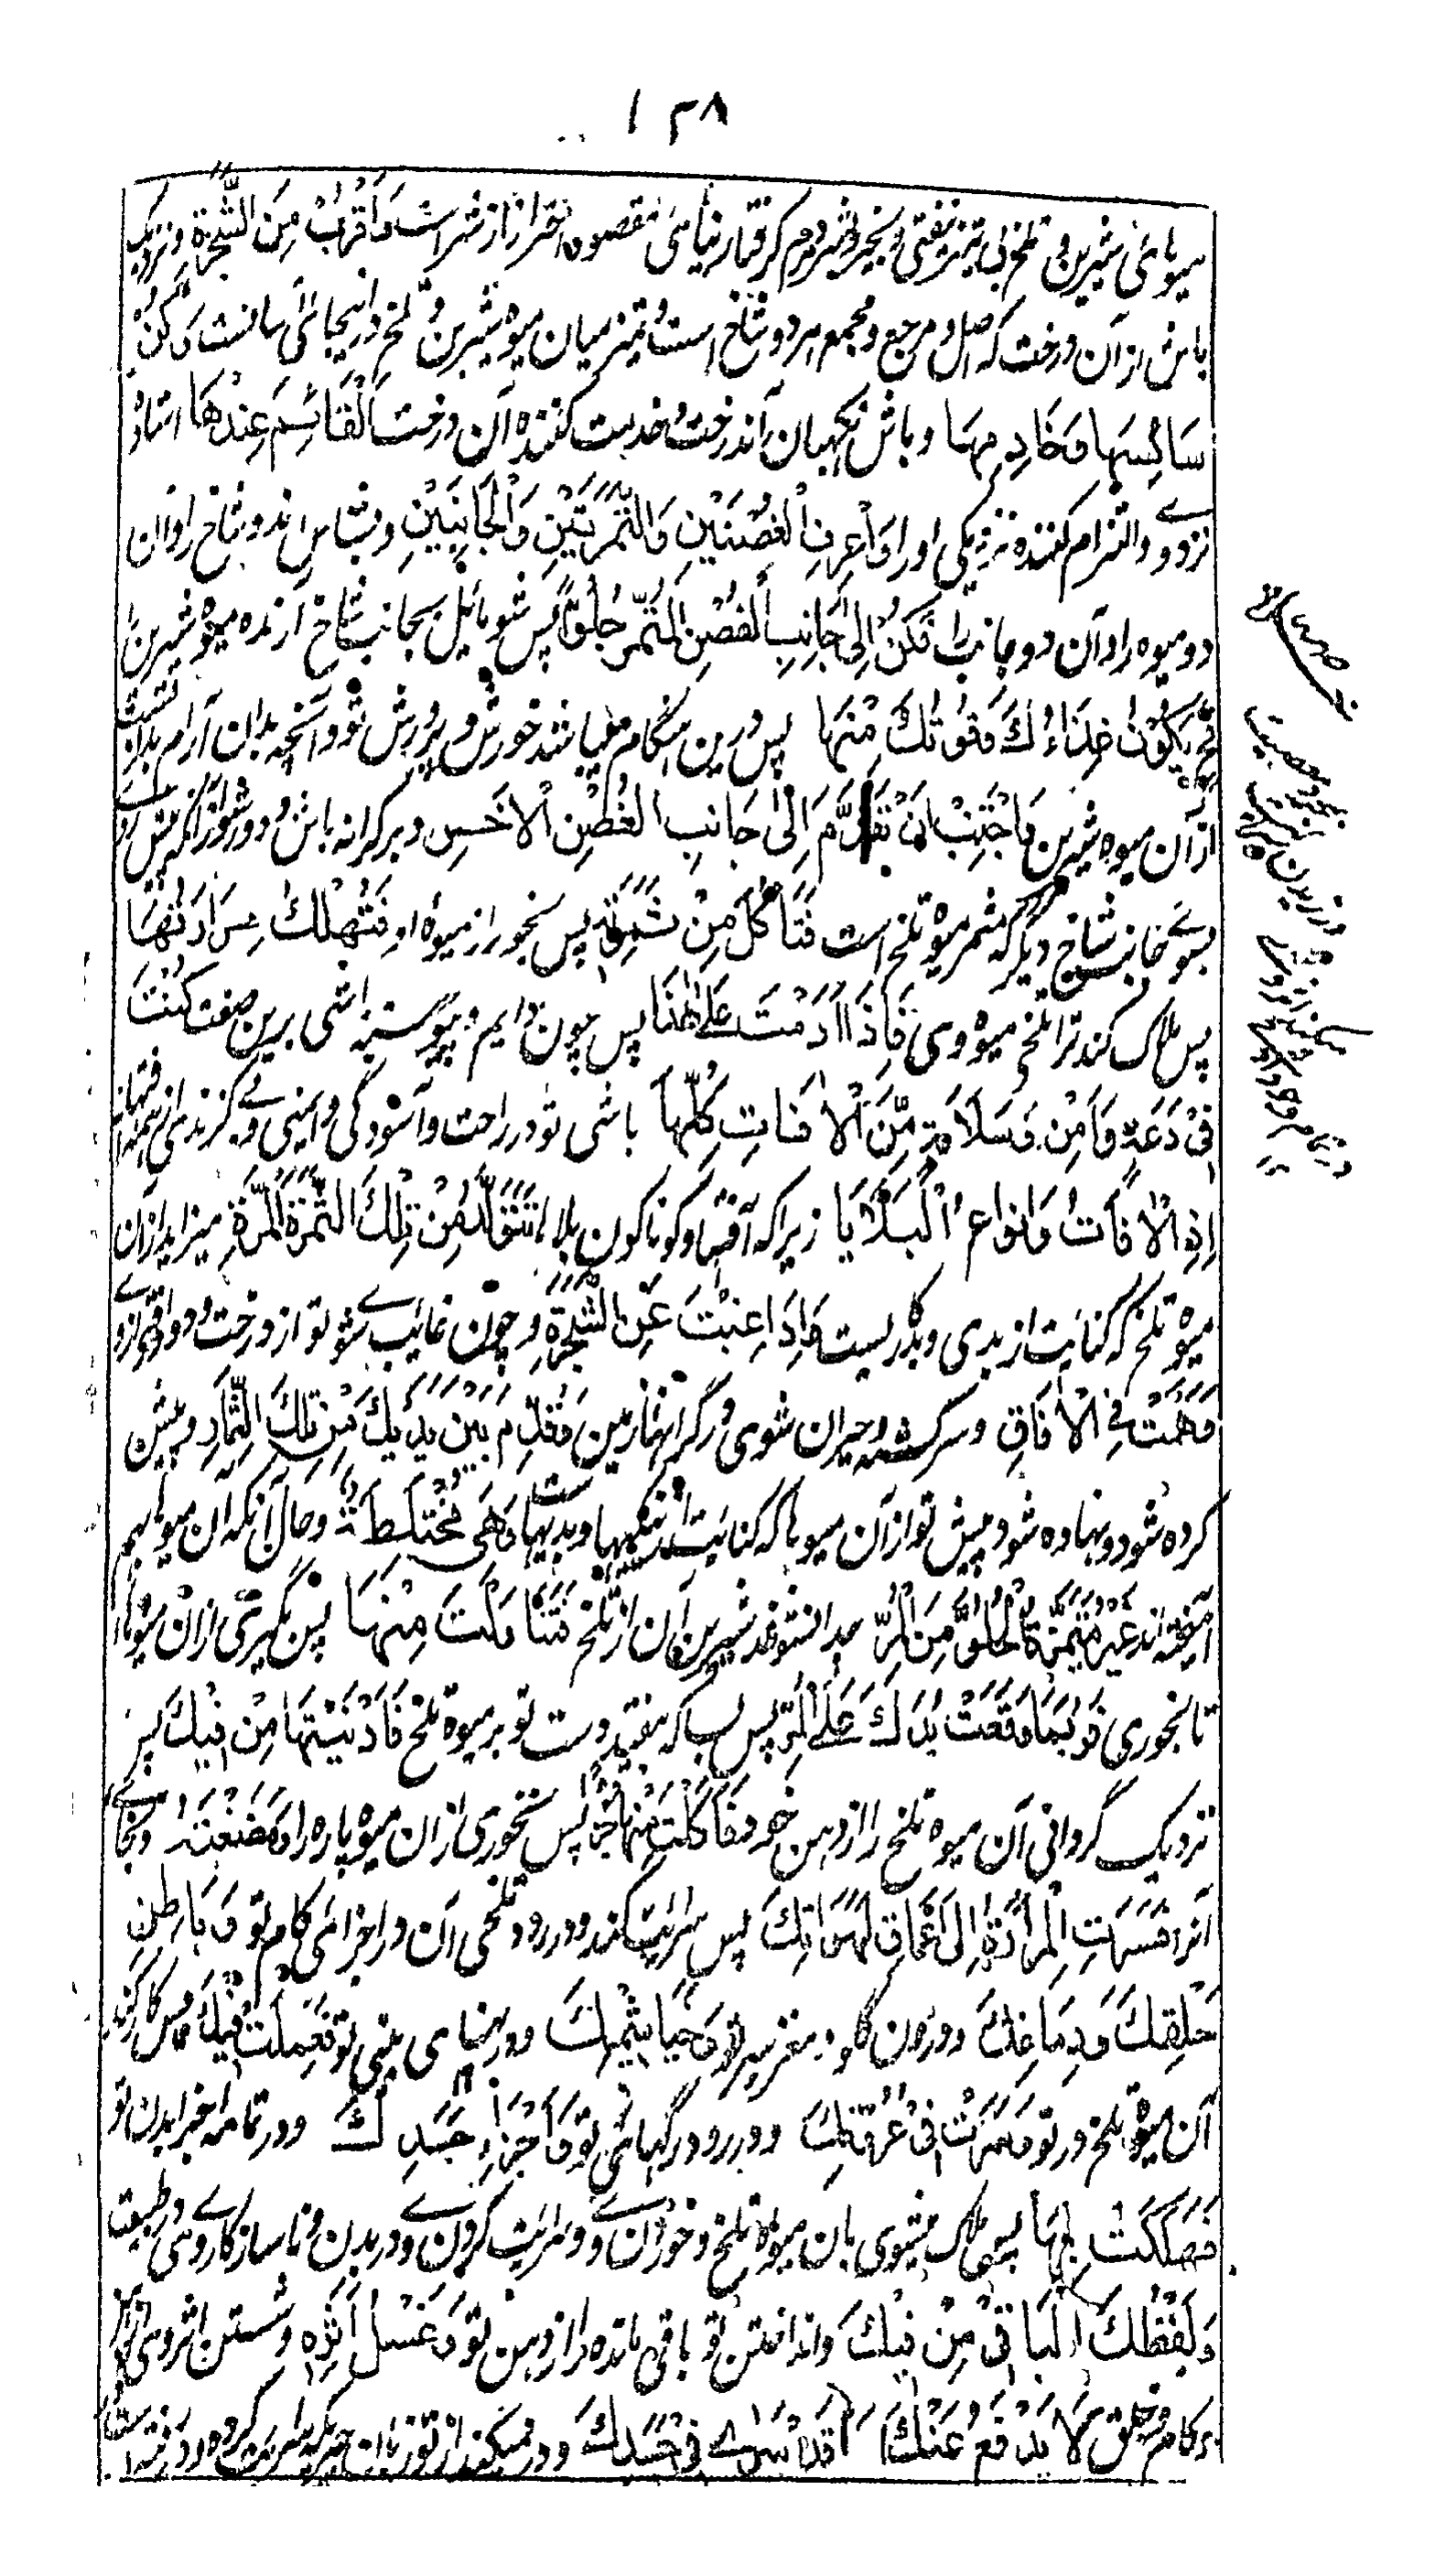 ۱۳۸
میوهای شیرین و تلخ بی تمیز نیفتی و بخیر و شر مردم گرفتار نیائی مقصود احتراز از شهر است وَاقْرُبْ مِنَ الشَّجَرَةِ و نزدیک
باش از آن درخت که اصل و مرجع و مجمع هر دو شاخ است و تمیز میان میوه شیرین و تلخ در اینجا آسانست وَكُنْ
سَائِسَهَا وَخَادِمَهَا و باش نگهبان آندرخت و خدمت کننده آن درخت اَلْقَائِمَ عِنْدَهَا استاده
نزد وے و التزام کننده نزدیکی او را وَاعْرِفِ الْغُصْنَيْنِ وَالثَّمَرَتَيْنِ وَالْجَانِبَيْنِ و بشناس آندو شاخ را و آن
دو میوه را و آن دو جانب را فَكُنْ اِلَى جَانِبِ الْغُصْنِ الْمُثْمِرِ حُلْوًا پس شو مائل بجانب شاخ آرنده میوه شیرین را
فَحِ يَكُوْنُ غِذَاءُكَ وَقُوْتُكَ مِنْهَا پس درین هنگام میباشد خورش و پرورش تو و آنچه بدان آرام بدن تست
از آن میوه شیرین وَاجْتَنِبْ اَنْ تَقَدَّمَ اِلَى جَانِبِ الْغُصْنِ الْاٰخَرِ و بر کرانه باش و دور شو از آنکه پیش روے
بسوے جانب شاخ دیگر که مثمر میوه تلخ است فَتَاْكُلَ مِنْ ثَمَرَتِهٖ پس بخوری از میوهٔ او فَتُهْلِكَكَ مَرَارَتُهَا
پس هلاک کند ترا تلخی میوه وی فَاِذَا دُمْتَ عَلَى هٰذَا پس چون دایم و پیوسته باشی برین صفت كُنْتَ
فِيْ دَعَةٍ وَاَمْنٍ وَسَلَامَةٍ مِّنَ الْاٰفَاتِ كُلِّهَا باشی تو در راحت و آسودگی و ایمنی و بے گزندی از همه آفتها
اِذِ الْاٰفَاتُ وَاَنْوَاعُ الْبَلَايَا زیرا که آفتها و گوناگون بلاها تَتَوَلَّدُ مِنْ تِلْكَ الثَّمَرَةِ الْمُرَّةِ میزاید از آن
میوه تلخ که کنایت از بدی و بدکاریست وَاِذَا غِبْتَ عَنِ الشَّجَرَةِ و چون غایب شوے تو از درخت و دور افتی از وے
وَهِمْتَ فِي الْاٰفَاقِ و سرگشته و حیران شوی در کرانهای زمین وَقُدِّمَ بَيْنَ يَدَيْكَ مِنْ تِلْكَ الثِّمَارِ و پیش
کرده شود و نهاده شود پیش تو از آن میوها که کنایت است از نیکیها و بدیها وَهِيَ مُخْتَلِطَةٌ و حال آنکه آن میوها بهم
آمیخته اند غَيْرُ مُتَمَيِّزَةِ الْحُلْوِ مِنَ الْمُرِّ جدا نشوند شیرین آن از تلخ فَتَنَاوَلْتَ مِنْهَا پس بگیری از آن میوها
تا بخوری فَرُبَمَا وَقَعَتْ يَدُكَ عَلَى الْمُرِّ پس بسا که میفتد دست تو بر میوه تلخ فَاَدْنَيْتَهَا مِنْ فِيْكَ پس
نزدیک گردانی آن میوه تلخ را از دهن خود فَاَكَلْتَ مِنْهَا جُزْءًا پس بخوری از آن میوه پاره را وَمَضَغْتَهُ و بخائے
آنرا فَسَرَتِ الْمَرَارَةُ اِلَى اَعْمَاقِ لَهَوَاتِكَ پس سرایت کند و در رود تلخی آن در اجزای کام تو وَبَاطِنِ
حَلْقِكَ وَدِمَاغِكَ و درون گلو و مغز سر تو وَخَيَاشِيْمِكَ و در بنهای بینی تو فَعَمِلَتْ فِيْكَ پس کار کند
آن میوه تلخ در تو وَسَرَتْ فِيْ عُرُوْقِكَ و در رود در رگهای تو وَاَجْزَاءِ جَسَدِكَ و در تمامه اجزاء بدن تو
فَهَلَكْتَ بِهَا پس هلاک میشوی بآن میوه تلخ و خوردن وے و سرایت کردن وے در بدن و ناسازگاری وی در طبیعت
وَلَفْظُكَ الْبَاقِيَ مِنْ فِيْكَ و انداختن تو باقی مانده را از دهن تو وَغَسْلُ اَثَرِهٖ و شستن اثر وی از دهن
و کام و حلق لَا يَدْفَعُ عَنْكَ مَا قَدْ سَرٰى فِيْ جَسَدِكَ و دفع نمیکند از تو زیان چیزیکه سرایت کرده و در رفته است